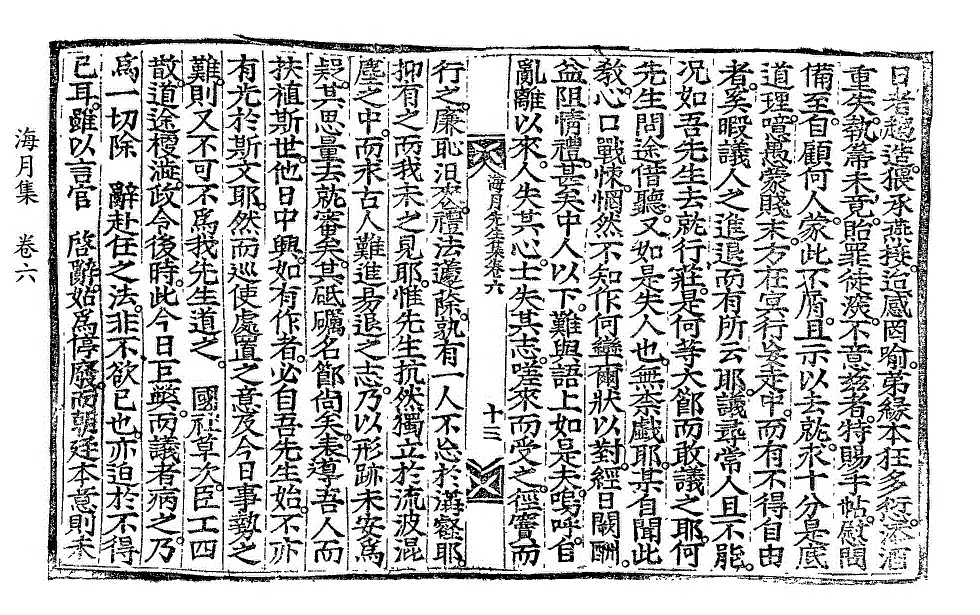 日者趍造。猥承燕接。迨感罔喻。第緣本狂。多衍添酒
重失執籌未竟。貽罪徒深。不意玆者。特賜手帖。慰問
備至。自顧何人。蒙此不屑。且示以去就。求十分是底
道理。噫。愚蒙賤末。方在冥行妄走中。而有不得自由
者。奚暇議人之進退而有所云耶。議尋常人且不能。
况如吾先生去就行莊。是何等大節而敢議之耶。何
先生問途借聽。又如是失人也。無柰戱耶。某自聞此
敎。心口戰悚。惘然不知作何㜻爾狀以對。經日闕酬。
益阻情禮。甚矣。中人以下。難與語上。如是夫。嗚呼。自
亂離以來。人失其心。士失其志。嗟來而受之。徑竇而
海月先生文集卷六 十三
行之。廉恥汩喪。禮法蘧除。孰有一人不怂於溝壑耶。
抑有之而我未之見耶。惟先生抗然獨立於流波混
塵之中。而求古人難進易退之志。乃以形跡未安爲
疑。其思量去就審矣。其砥礪名節尙矣。表導吾人而
扶植斯世。他日中興。如有作者。必自吾先生始。不亦
有光於斯文耶。然而巡使處置之意及今日事勢之
難。則又不可不爲我先生道之。 國社草次。臣工四
散。道途梗澁。政令後時。此今日巨弊。而議者病之。乃
爲一切除 辭赴任之法。非不欲已也。亦迫於不得
已耳。雖以言官 啓辭。姑爲停廢。而朝廷本意則未
海月集 卷六